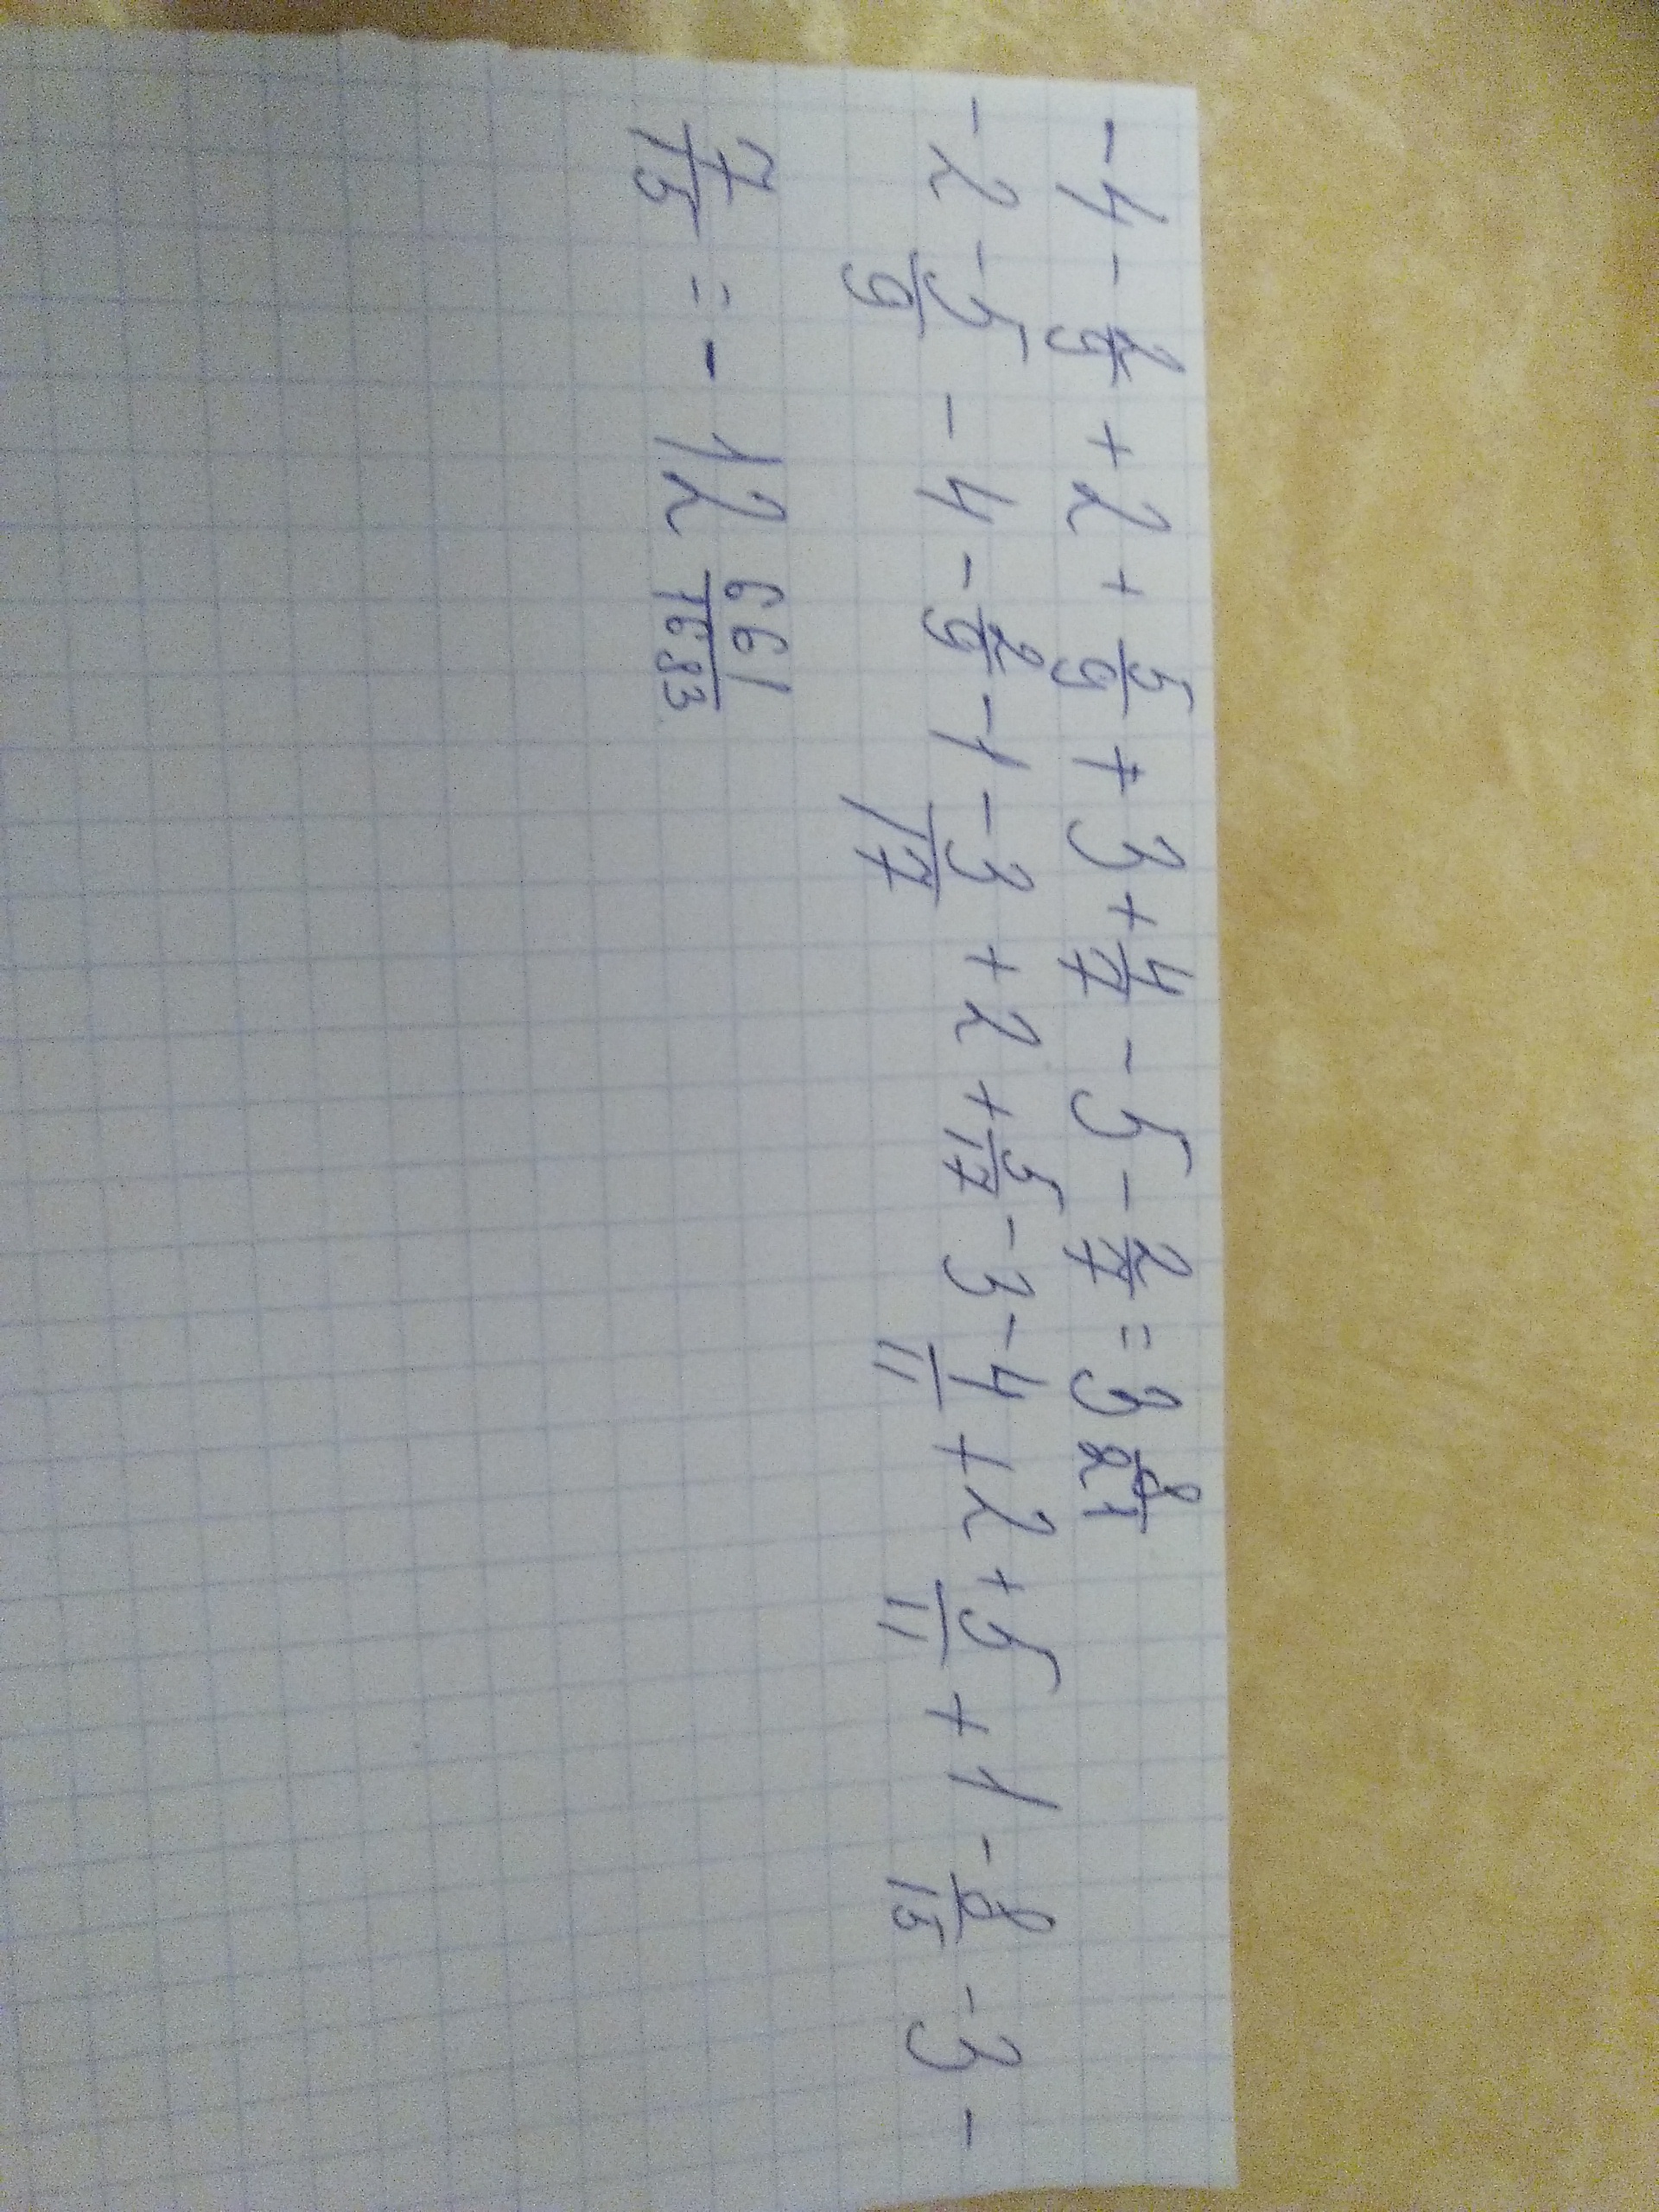 -4 - 2/9 + 2 + 5/9 + 3 + 4/7 - 5 - 2/7 = 3 8/21
-2 - 5/9 - 4 - 2/9 - 1 - 3/17 + 2 + 5/17 - 3 - 4/11 + 2 + 5/11 + 1 - 8/15 - 3 -
7/15 = - 12 661/1683